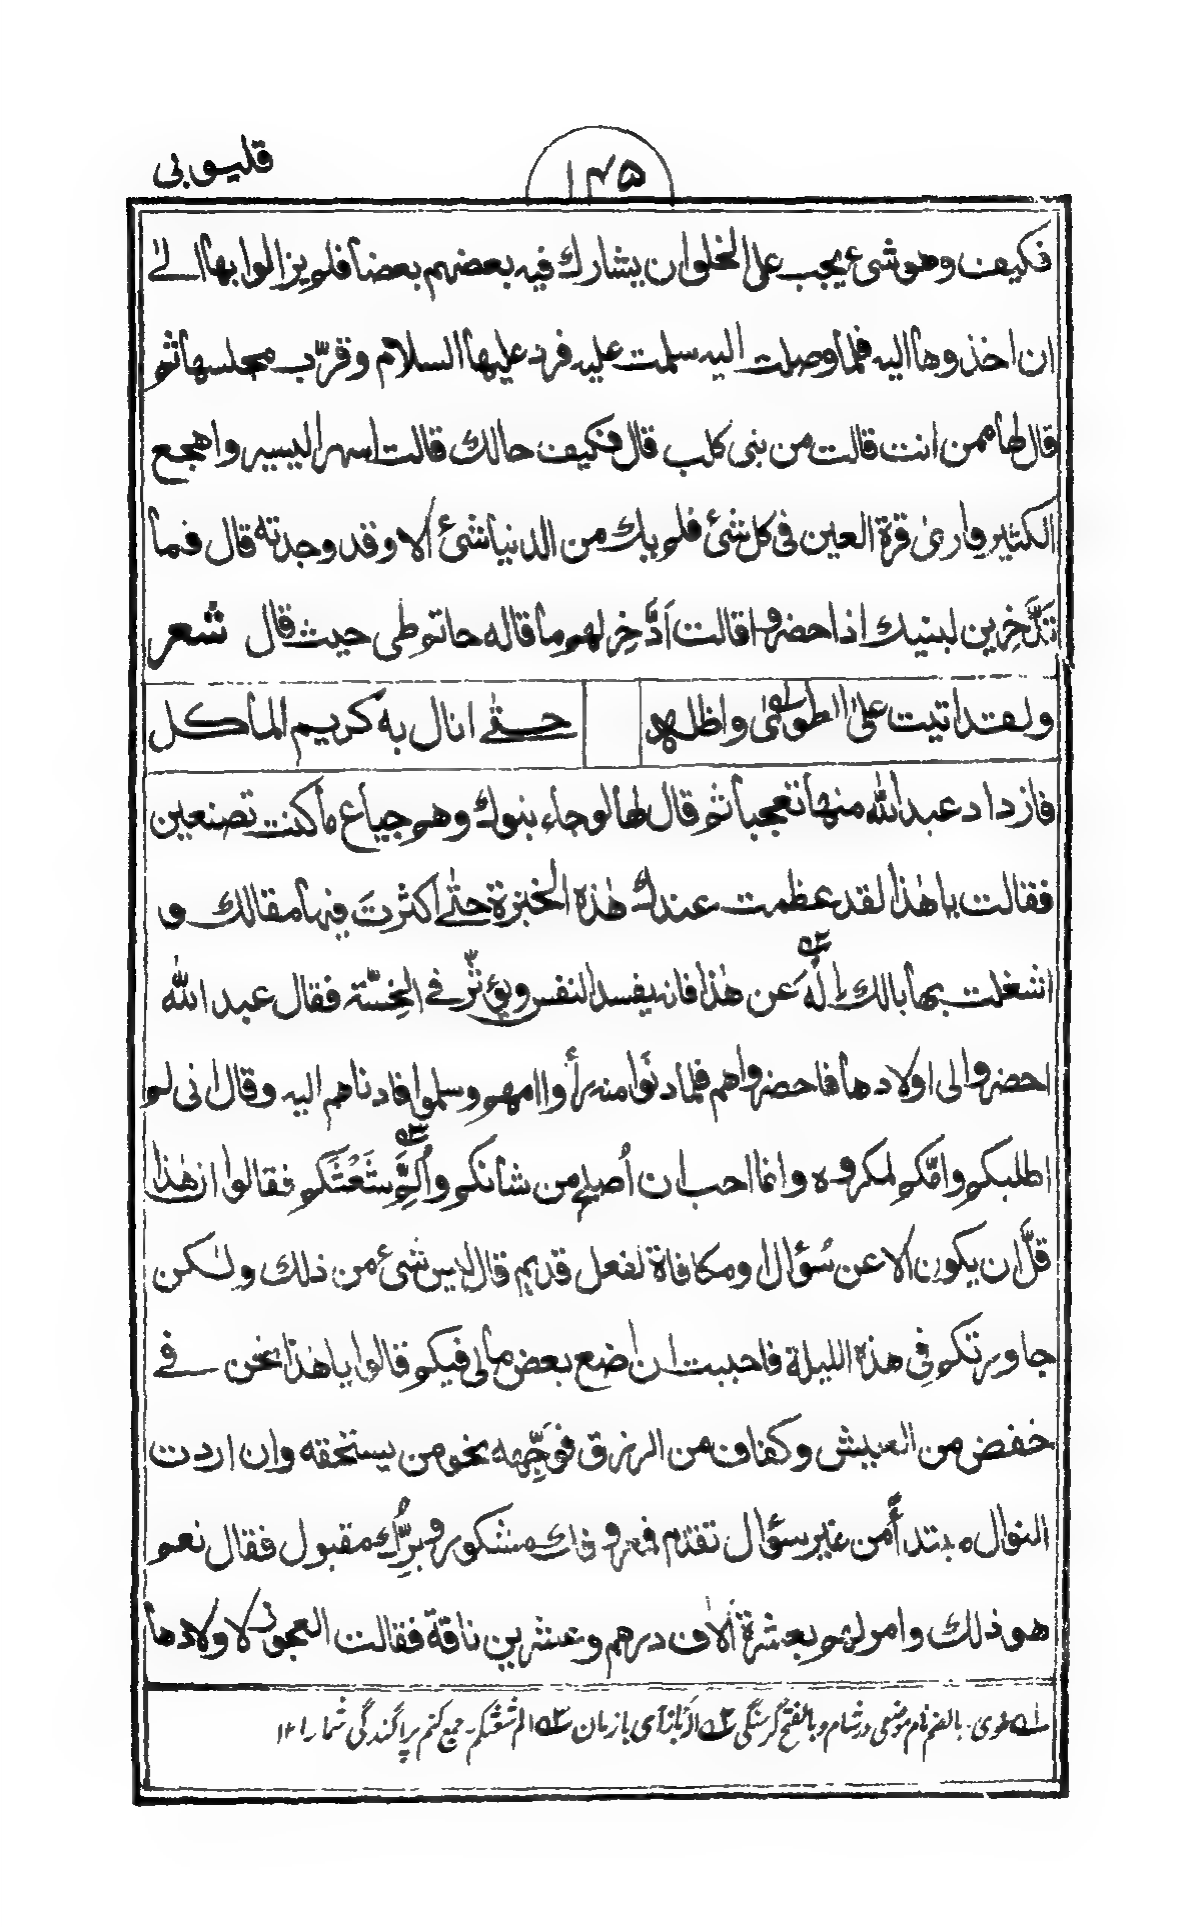 قليوبي
۱۴۵
فكيف وهو شئ يجب على الخلوان يشارك فيه بعضهم بعضا فلم يزالوا بها الے
ان اخذوها اليه فلما وصلت اليه سلمت عليه فرد عليها السلام وقرّب مجلسها ثم
قال لها ممن انت قالت من بنى كلب قال فكيف حالك قالت اسهر اليسير واهجع
الكثير وارى قرة العين فى كل شئ فلم يك من الدنيا شئ الا وقد وجدته قال فما
تدَّخِرين لبنيك اذا حضروا قالت ادَّخِر لهم ما قاله حاتم طى حيث قال شعر
ولقد اتيت على الطوى واظله حتى انال به كريم المأكل
فازداد عبد الله منها تعجبا ثم قال لها لو جاء بنوك وهم جياع ما كنت تصنعين
فقالت يا هذا لقد عظمت عندك هذه الخبزة حتى اكثرتَ فيها مقالك و
اشغلت بها بالك اِلْهَ عن هذا فانه يفسد النفس ويؤثّر فى الخِسّة فقال عبد الله
احضروا لى اولادها فاحضروهم فلما دنَوا منه رأوا امهم وسلموا فادناهم اليه وقال انى لم
اطلبكم وامّكم لمكروه وانما احب ان اُصلح من شأنكم واَلُمَّ شَعَثَكم فقالوا ان هذا
قلَّ ان يكون الا عن سُؤال او مكافاة لفعل قديم قال ليس شئ من ذلك ولكن
جاورتكم فى هذه الليلة فاحببت ان اضع بعض مالى فيكم قالوا يا هذا نحن فے
خفض من العيش وكفاف من الرزق فوَجِّهه نحو من يستحقه وان اردت
النوال مبتدأ من غير سؤال تقدم فمعروفك مشكور وبرُّك مقبول فقال نعم
هو ذلك وامر لهم بعشرة الاف درهم وعشرين ناقة فقالت العجوز لاولادها
۱ه طوى۔ بالضم نام موضعى در شام و بالفتح گرسنگى ۲ه از باز آى باز مان ۳ه الم شعثكم۔ جمع كنم پراگندگى شمارا ۱۲